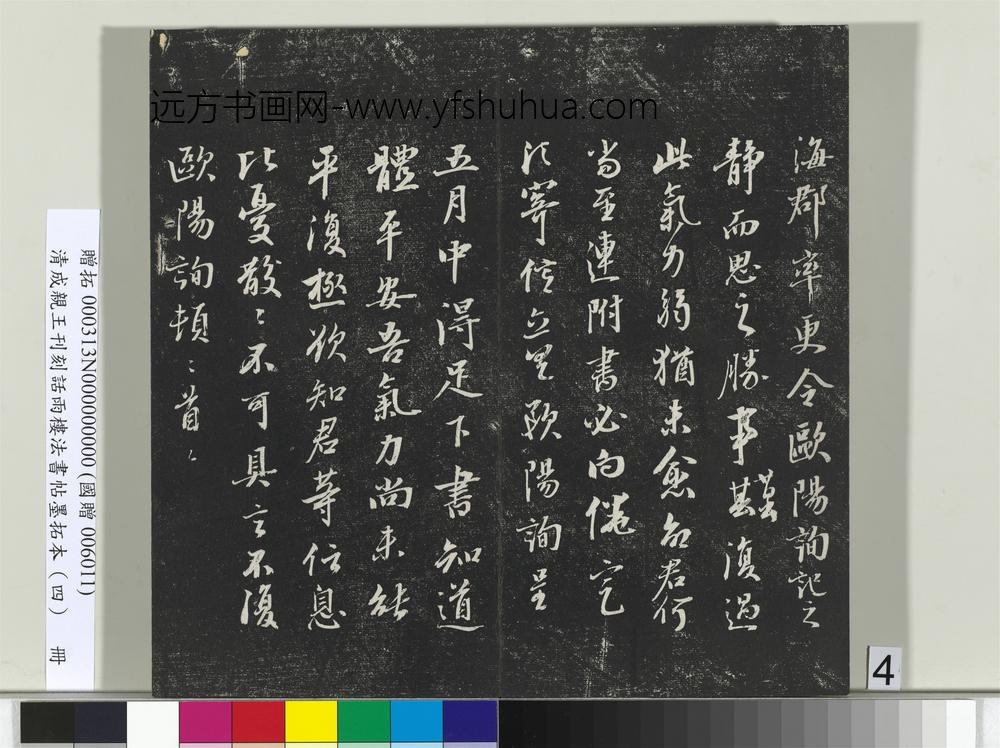 远方书画网-www.yfshuhua.com
海郡率更令歐陽詢記之
静而思之勝事甚復過
此氣力弱猶未愈如君何
當至連附書必向倦
寄信立呈歐陽詢呈
五月中得足下書知道
體平安吾氣力尚未能
平復極欲知君等信息
比憂散〻不可具言不復
歐陽詢頓〻首〻
贈拓 000313N000000000 (國贈 006011)
清成親王刊刻話雨樓法書帖墨拓本（四） 冊
4